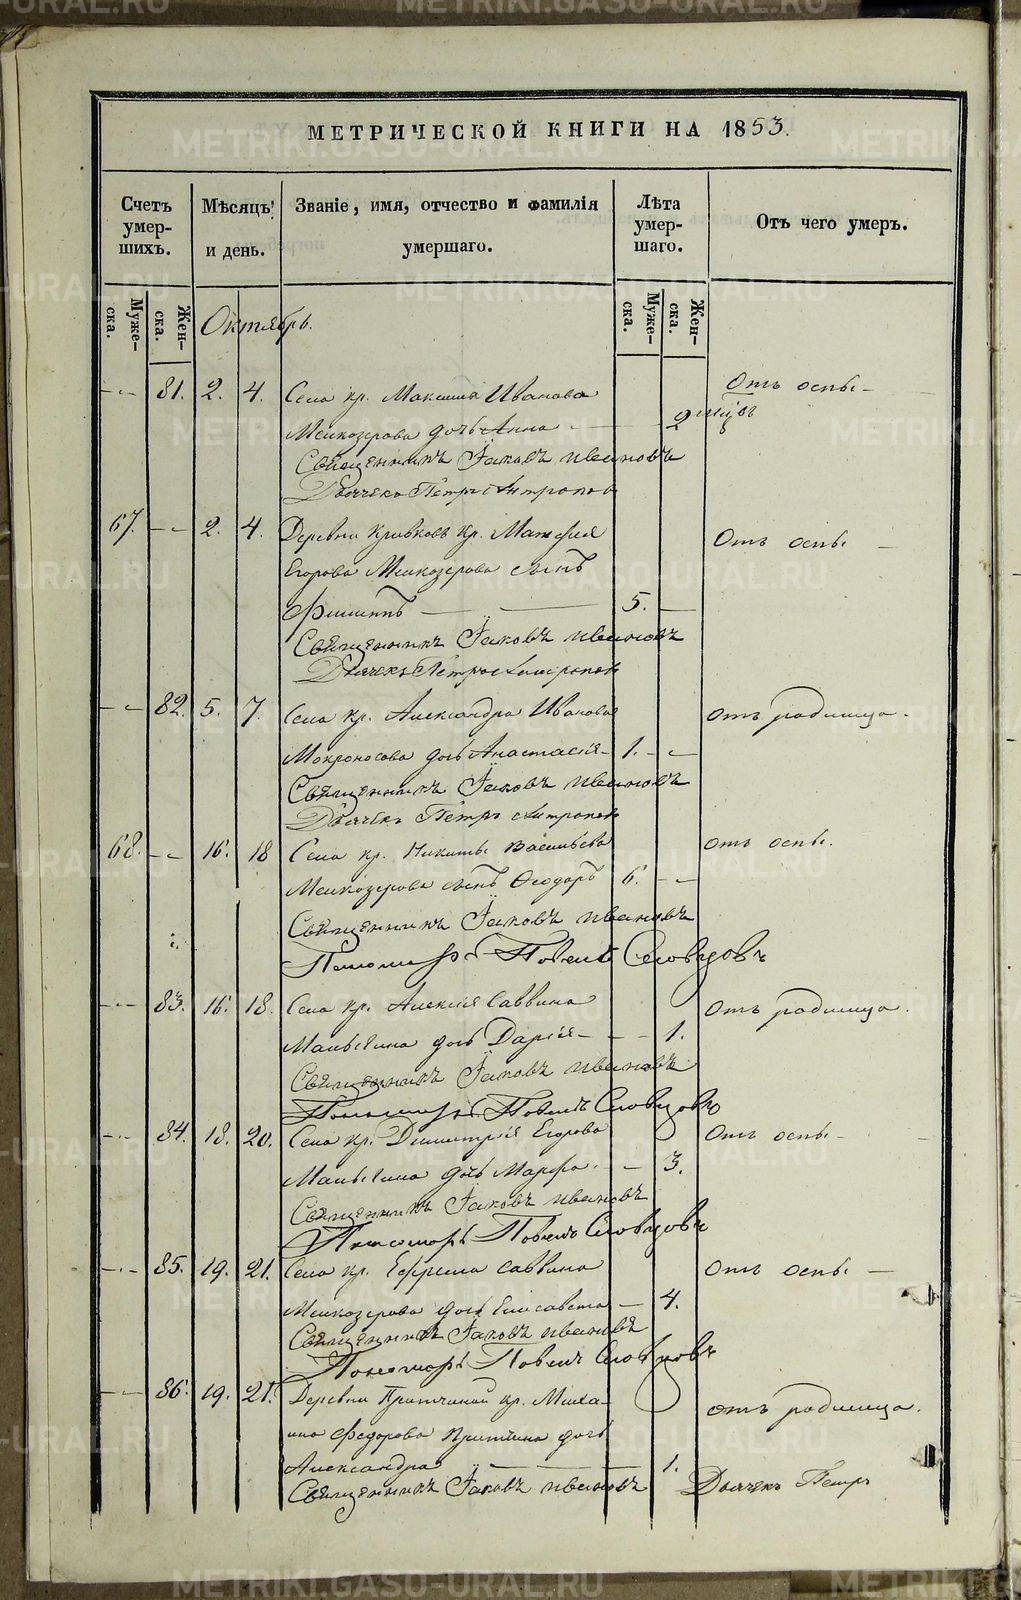 МЕТРИЧЕСКОЙ КНИГИ НА 1853.
Счетъ умер-шихъ.
Мѣсяцъ и день.
Званіе, имя, отчество и фамилія умершаго.
Лѣта умер-шаго.
Отъ чего умеръ.
Муже-ска.
Жен-ска.
Муже-ска.
Жен-ска.
Октябрь.
81. 2. 4. Села кр. Максима Иванова Отъ оспы
Мелкозерова дочь Анна 2
Священникъ Іаковъ Ивановъ
Дьячекъ Петръ
67. 2. 4. Деревни кр. Отъ оспы
Егорова Мелкозерова сынъ
Филиппъ 5.
Священникъ Іаковъ Ивановъ
Дьячекъ Петръ
82. 5. 7. Села кр. Александра Иванова отъ родимца.
Мокроносова дочь Анастасія 1.
Священникъ Іаковъ Ивановъ
Дьячекъ Петръ
68. 16. 18 Села кр. Никиты Васильева отъ оспы.
Мелкозерова сынъ Ѳеодоръ 6.
Священникъ Іаковъ Ивановъ
Пономарь Павелъ Словцовъ
83. 16. 18. Села кр. Алексія Саввина отъ родимца.
дочь Дарія 1.
Священникъ Іаковъ Ивановъ
Пономарь Павелъ Словцовъ
84. 18. 20. Села кр. Димитрія Егорова Отъ оспы
дочь Марфа 3.
Священникъ Іаковъ Ивановъ
Пономарь Павелъ Словцовъ
85. 19. 21. Села кр. Ефрема Саввина отъ оспы
Мелкозерова дочь Елисавета 4.
Священникъ Іаковъ Ивановъ
Пономарь Павелъ Словцовъ
86. 19. 21. Деревни кр. Миха- отъ родимца.
ила Федорова дочь
Александра 1.
Священникъ Іаковъ Ивановъ Дьячекъ Петръ
METRIKI.GASO-URAL.RU